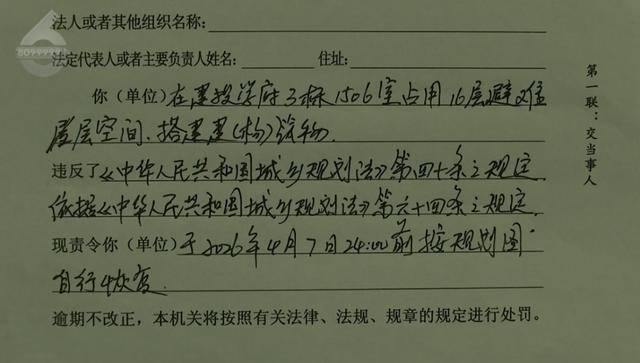 法人或者其他组织名称:
法定代表人或者主要负责人姓名: 住址:
你(单位)在建投学府3栋1506室占用16层避难
层空间、搭建建(构)筑物
违反了《中华人民共和国城乡规划法》第四十条之规定
依据《中华人民共和国城乡规划法》第六十四条之规定
现责令你(单位)于2026年4月7日24:00前按规划图
自行恢复
逾期不改正,本机关将按照有关法律、法规、规章的规定进行处罚。
第一联:交当事人